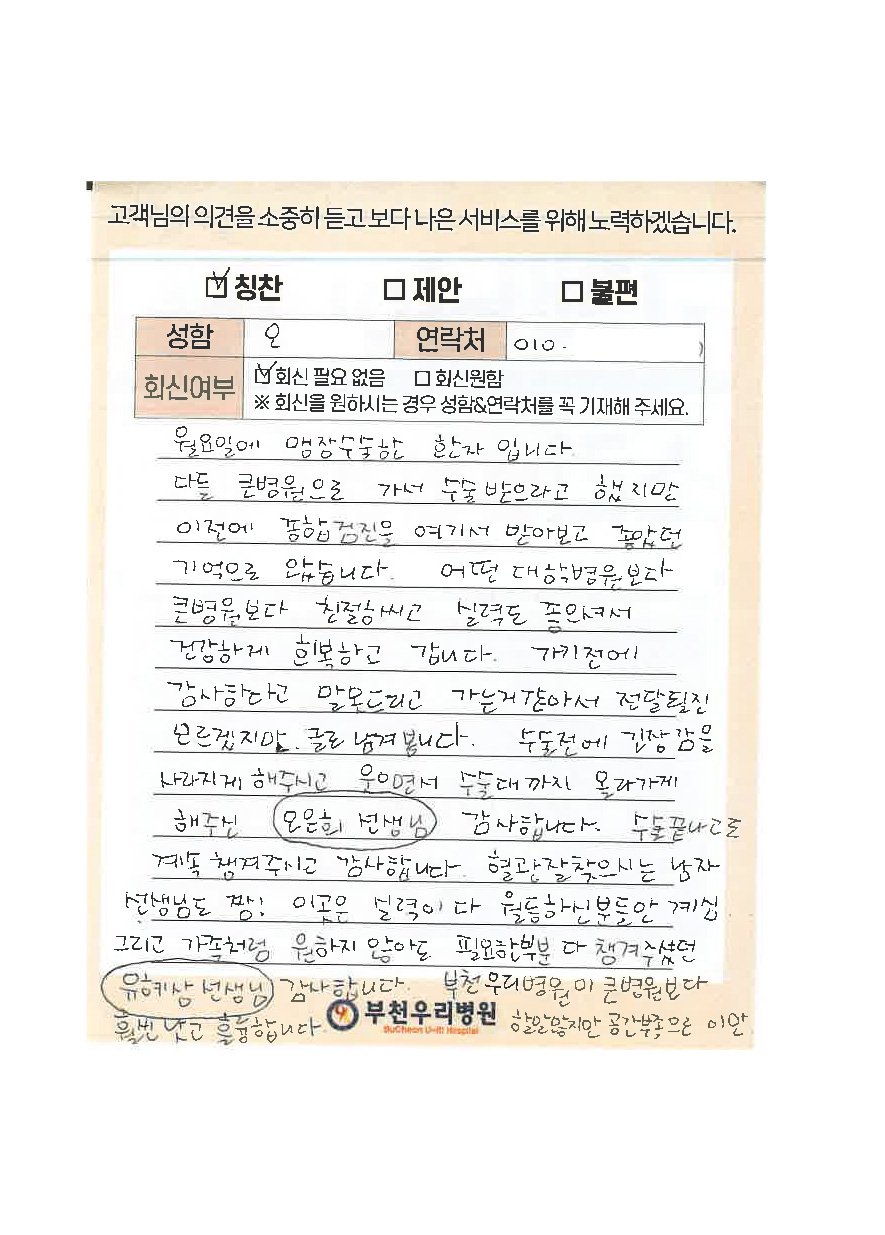 고객님의 의견을 소중히 듣고 보다 나은 서비스를 위해 노력하겠습니다.
☑ 칭찬 ☐ 제안 ☐ 불편
성함 오 연락처 010-
회신여부 ☑ 회신 필요 없음 ☐ 회신원함
※ 회신을 원하시는 경우 성함&연락처를 꼭 기재해 주세요.
월요일에 맹장수술한 환자 입니다.
다들 큰병원으로 가서 수술 받으라고 했지만
이전에 종합검진을 여기서 받아보고 좋았던
기억으로 왔습니다. 어떤 대학병원보다
큰병원보다 친절하시고 실력도 좋으셔서
건강하게 회복하고 갑니다. 가기전에
감사하다고 말못드리고 가는거같아서 전달될진
모르겠지만 글로 남겨봅니다. 수술전에 긴장감을
사라지게 해주시고 웃으면서 수술대까지 올라가게
해주신 오은희 선생님 감사합니다. 수술끝나고도
계속 챙겨주시고 감사합니다. 혈관잘찾으시는 남자
선생님도 짱! 이곳은 실력이 다 월등하신분들만 계심.
그리고 가족처럼 원하지 않아도 필요한부분 다 챙겨주셨던
유혜삼 선생님 감사합니다. 부천우리병원이 큰병원보다
훨씬 낫고 훌륭합니다. 부천우리병원 할말많지만 공간부족으로 이만
BuCheon U-RI Hospital